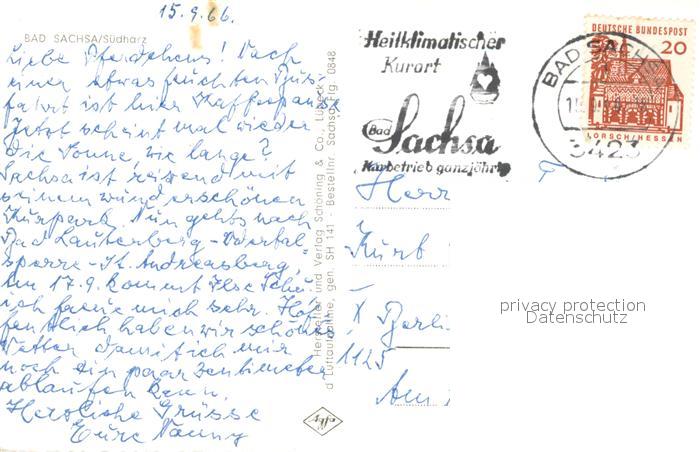 15.9.66.
BAD SACHSA/Südharz
Liebe Nach
einer etwas feuchten Bus-
fahrt ist hier Kaffeepause
Jetzt scheint mal wieder
die Sonne, wie lange?
Sachsa ist reizend mit
seinem wunderschönen
Kurpark. Nun gehts nach
Bad Lauterberg - Odertal
sperre - St. Andreasberg,
Am 17.9. kommt Ilse
ich freue mich sehr. Hof
fentlich haben wir schönes
Wetter damit ich mir
noch ein paar Zentimeter
ablaufen kann.
Herzliche Grüsse
Eure Nanny
Hersteller und Verlag Schöning & Co., Lübeck
d Luftaufnahme, gen. SH 141 - Bestellnr. Sachsa Flg 0848
Agfa
Heilklimatischer
Kurort
Bad
Sachsa
Kurbetrieb ganzjährig
BAD SACHSA
3423
DEUTSCHE BUNDESPOST
20
LORSCH/HESSEN
Herr
Kurt
1 Berli
1125
Am
privacy protection
Datenschutz